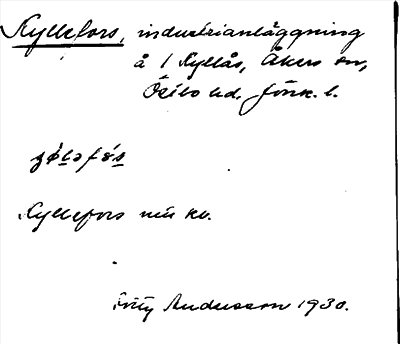 Kyllefors, industrianläggning
å 1 Kyllås, Åkers sn,
Östbo hd, Jönk. l.
Kyllefors nu kv.
Andersson 1930.